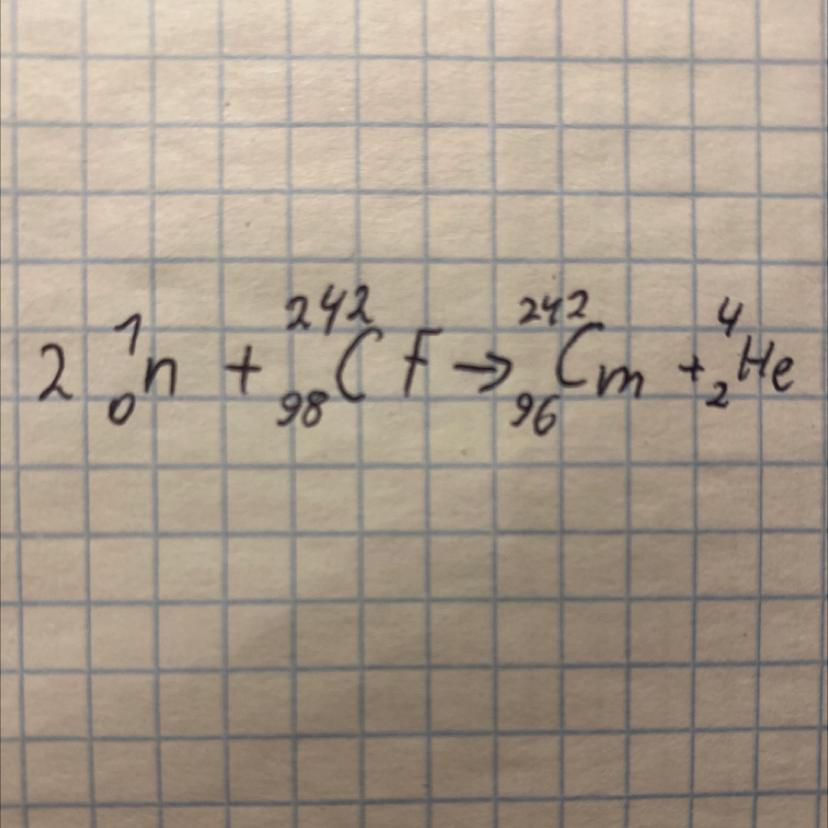 2 ¹₀n + ²⁴²₉₈Cf → ²⁴²₉₆Cm + ⁴₂He